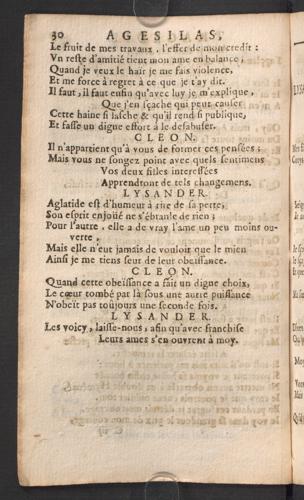 30 AGESILAS,
Le fruit de mes travaux, l'effet de mon credit :
Vn reste d'amitié tient mon ame en balance ;
Quand je veux le haïr je me fais violence,
Et me force à regret à ce que je t'ay dit.
Il faut, il faut enfin qu'avec luy je m'explique,
Que j'en sçache qui peut causer
Cette haine si lasche & qu'il rend si publique,
Et fasse un digne effort à le desabuser.
CLEON.
Il n'appartient qu'à vous de former ces pensées ;
Mais vous ne songez point avec quels sentimens
Vos deux filles interessées
Apprendront de tels changemens.
LYSANDER.
Aglatide est d'humeur à rire de sa perte,
Son esprit enjoüé ne s'ébranle de rien ;
Pour l'autre, elle a de vray l'ame un peu moins ou-
verte,
Mais elle n'eut jamais de vouloir que le mien
Ainsi je me tiens seur de leur obeïssance.
CLEON.
Quand cette obeïssance a fait un digne choix,
Le cœur tombé par là sous une autre puissance
N'obeït pas toûjours une seconde fois.
LYSANDER.
Les voicy, laisse-nous, afin qu'avec franchise
Leurs ames s'en ouvrent à moy.